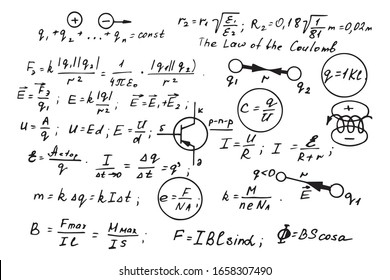 + −
q₁ + q₂ + ... + qₙ = const
r₂ = r₁ √(ε₁/ε₂) ; R₂ = 0,18 √(1/81) m = 0,02m
The Law of the Coulomb
F₃ = k |q₁||q₂| / r² = 1/(4πε₀) · |q₁||q₂| / r² .
q₁ r q₂
q = 1Kl.
E⃗ = F⃗₃/q₁ ; E = k|q|/r² ; E⃗ = E⃗₁ + E⃗₂ ;
к
C = q/U
U = A/q ; U = Ed ; E = U/d ;
p-n-p
I = U/R ; I = ℰ/(R+r) ;
+ −
ℰ = Aстор/q . I Δt→0 = Δq/Δt = q' ;
э
q<0 r q₁
E⃗
m = kΔq = kIΔt ;
e = F/N_A ;
k = M/(neN_A) .
B = Fmax/(Il) = Mmax/(IS) ;
F = IBlsinα ; Φ = BScosα
1658307490